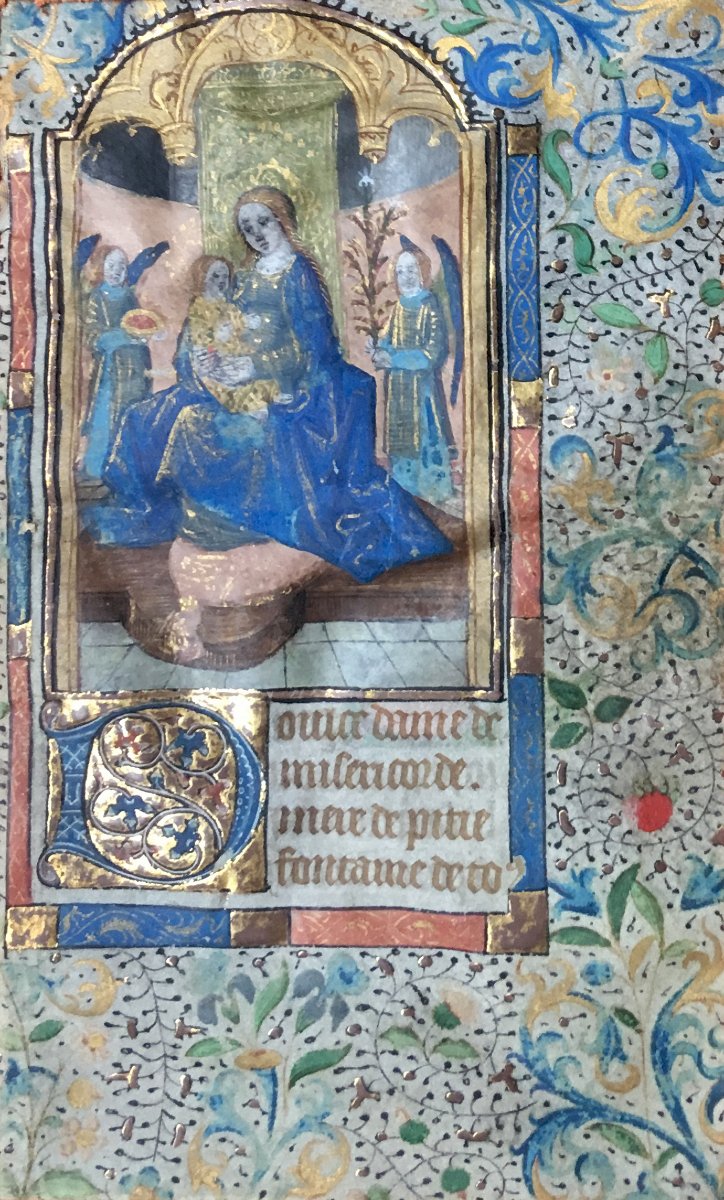 Doulce dame de
misericorde.
mere de pitie
fontaine de to9